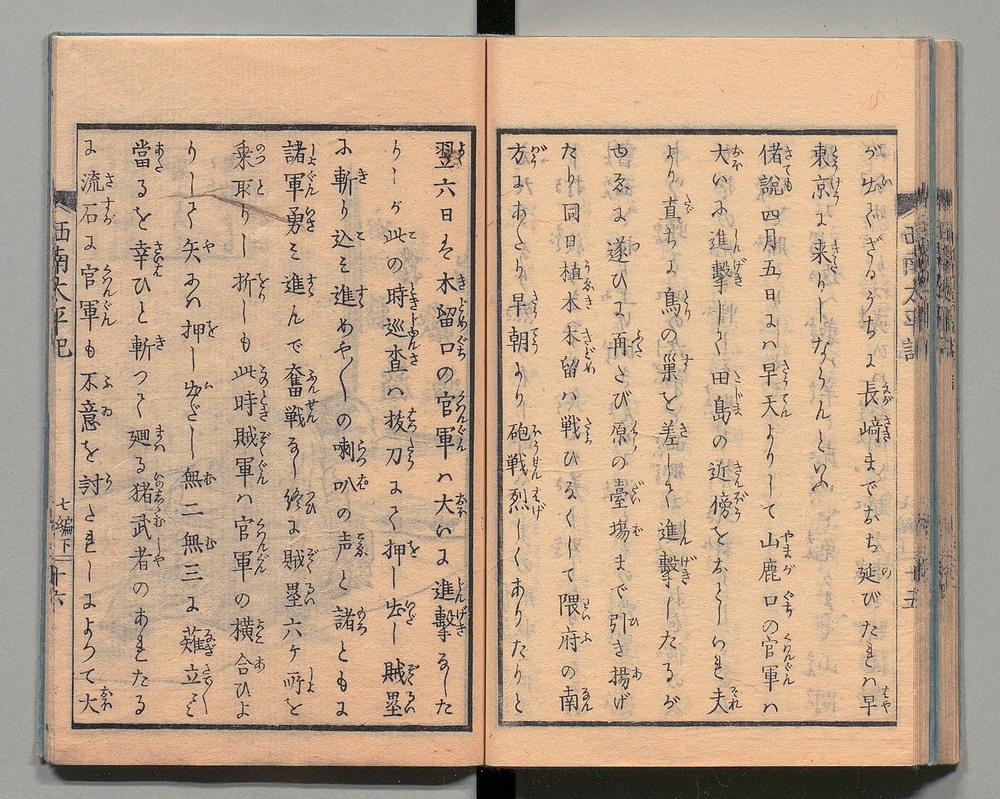 が出ぐぎるうちに長崎までおち延びたれハ早
東京に来りしならんといふ
偖説四月五日にハ早天よりして山鹿口の官軍ハ
大いに進撃して田島の近傍をおとしいれ夫
より直ちに鳥の巣を差して進撃したるが
ゆゑに遂ひに再たび原の臺場まで引き揚げ
たり同日植木木留ハ戦ひなくして隈府の南
方にあたり早朝より砲戦烈しくありたりと
翌六日も木留口の官軍ハ大いに進撃なした
りしが此の時巡査ハ抜刀にて押し出し賊塁
に斬り込ミ進めや〳〵の喇叭の声と諸ともに
諸軍勇ミ進んで奮戦なし終に賊塁六ケ所を
乗取りし折しも此時賊軍ハ官軍の横合ひよ
りして矢にハ押し出だし無二無三に薙立々々
當るを幸ひと斬つて廻る猪武者のあれたる
に流石に官軍も不意を討たれしによつて大
西南太平記
十五
西南太平記
七編下
十六